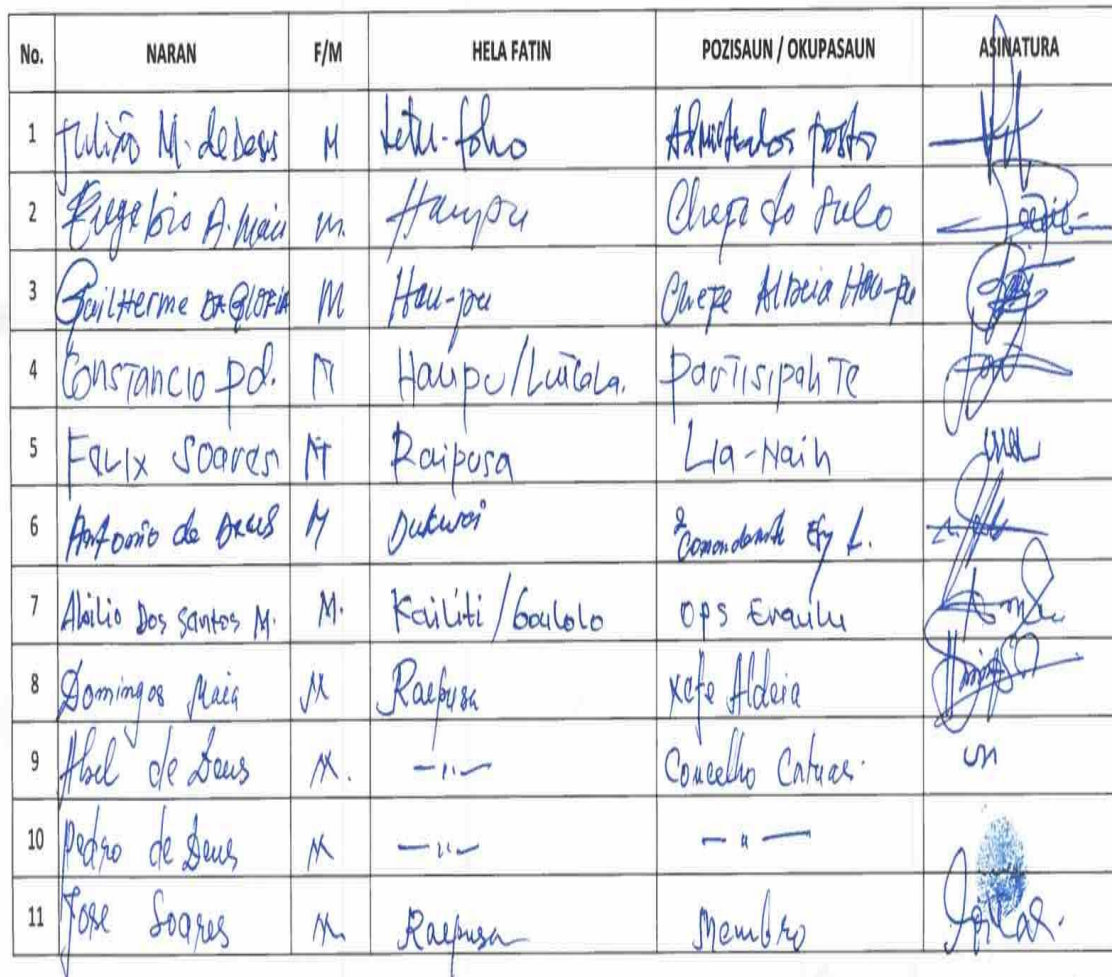 No. NARAN F/M HELA FATIN POZISAUN / OKUPASAUN ASINATURA
1 Julião M. de Deus M Letu-foho posto
2 A. Maia M. Haupu Chefe do Sulo
3 Guilherme DA GLORIA M Hau-pu Chefe Aldeia Hau-pu
4 CONSTANCIO pd. M Haupu/Luicala. PartisipanTe
5 Felix Soares M Raipusa Lia-Nain
6 Antonio de Deus M 2º Comandante
7 Abilio Dos Santos M. M. Kailiti / Goulolo OPS Eraulu
8 Domingos Maia M Raepusa xefe Aldeia
9 Abel de Deus M. -"- Concelho Catuas.
10 Pedro de Deus M -"- -"-
11 Jose Soares M. Raepusa Membro